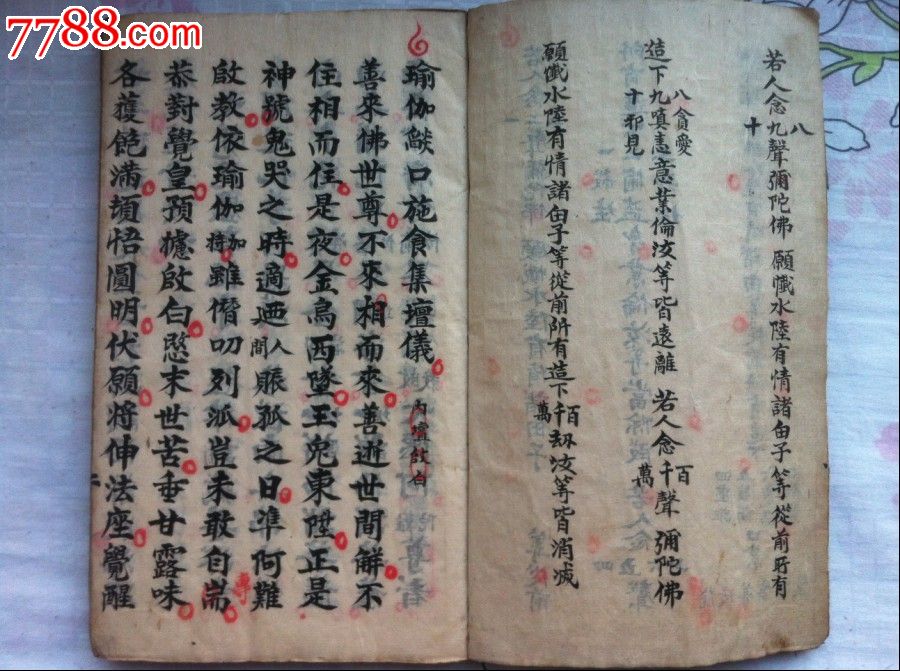 7788.com
若人念八九十聲彌陀佛 願懺水陸有情諸甶子等從前所有
造下八貪愛九嗔恚十邪見意業倫汝等皆遠離 若人念百千萬聲 彌陀佛
願懺水陸有情諸甶子等從前所有造下百千萬劫汝等皆消滅
瑜伽燄口施食集壇儀 內壇啟白
善來佛世尊不來相而來善逝世間解不
住相而住是夜金烏西墜玉兔東陞正是
神號鬼哭之時適迺人間賑孤之日準阿難
尊
啟教依瑜伽加持雖僭叨列派豈未敢自耑
恭對覺皇預攄啟白愍末世苦垂甘露味
各獲飽滿頓悟圓明伏願將伸法座覺醒